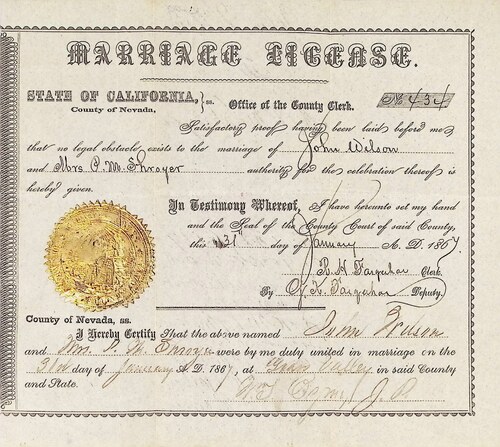 MARRIAGE LICENSE.
STATE OF CALIFORNIA, } ss.
County of Nevada,
Office of the County Clerk.
No 434
Satisfactory proof having been laid before me
that no legal obstacle exists to the marriage of John Wilson
and Mrs P. M. Shroyer authority for the celebration thereof is
hereby given.
In Testimony Whereof, I have hereunto set my hand
and the Seal of the County Court of said County,
this 31st day of January A. D. 1867.
R. H. Farquhar Clerk.
By Farquhar Deputy.
County of Nevada, ss.
I Hereby Certify That the above named John Wilson
and Mrs. P. M. Shroyer were by me duly united in marriage on the
31st day of January A. D. 1867, at Grass Valley in said County
and State.
J. P.